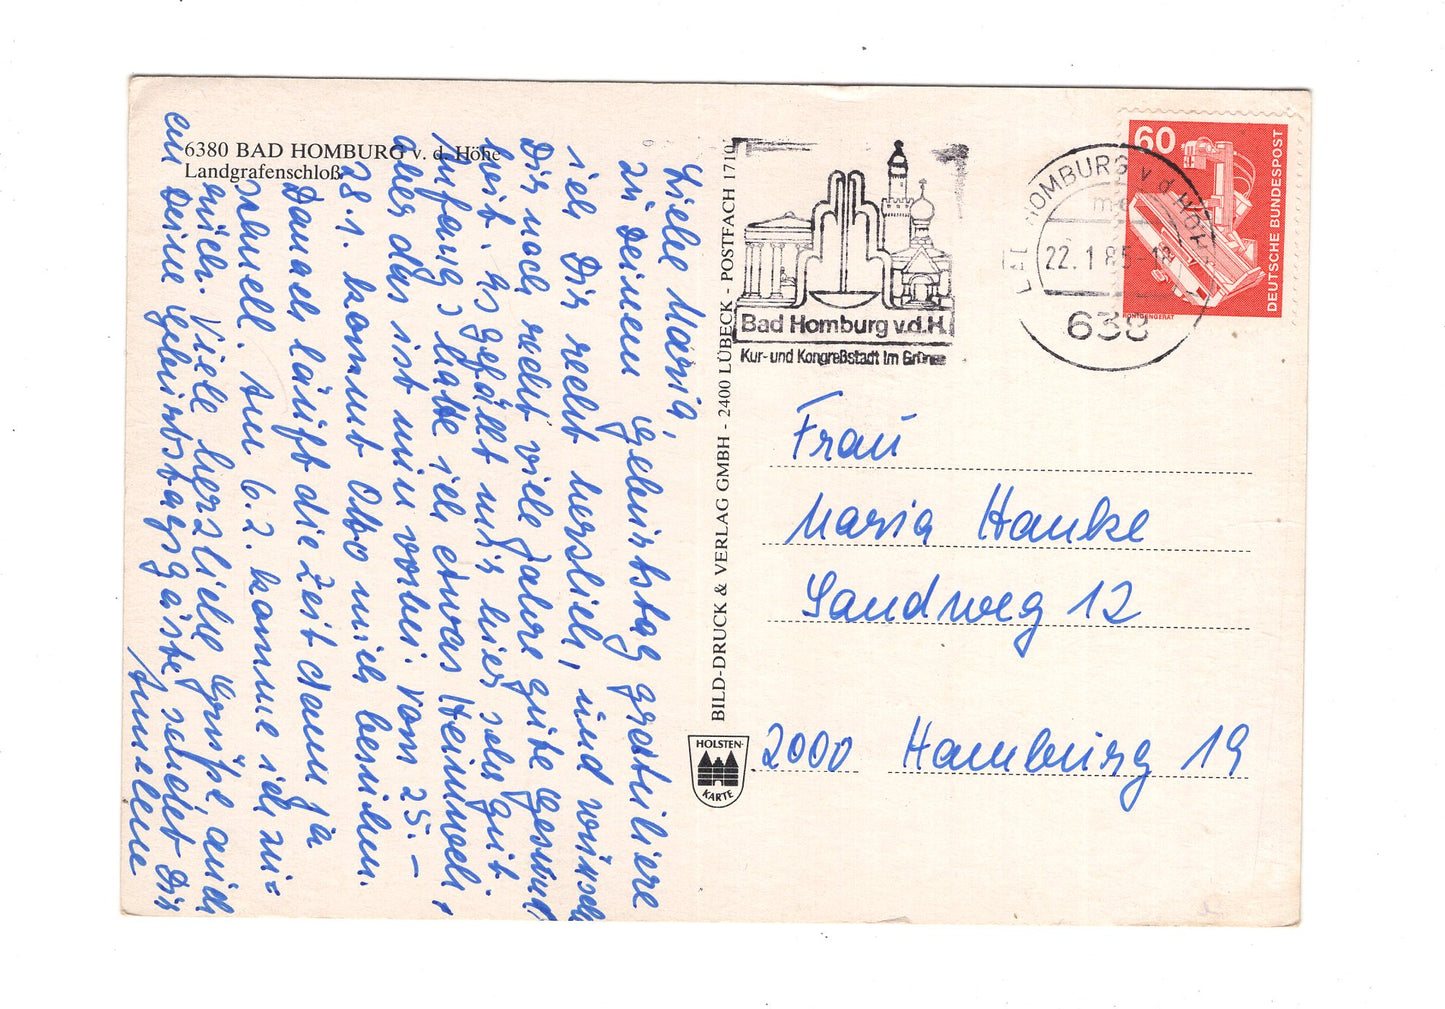 6380 BAD HOMBURG v. d. Höhe
Landgrafenschloß
Liebe Maria,
zu Deinem Geburtstag gratuliere
ich Dir recht herzlich, und wünsche
Dir noch recht viele Jahre gute Gesund
heit. Es gefällt mir hier sehr gut.
Anfangs hatte ich etwas Heimweh,
aber das ist nun vorbei. Vom 25.-
28.1. kommt Otto mich besuchen.
Danach läuft die Zeit dann ja
schnell. Am 6.2. komme ich zu=
rück. Viele herzliche Grüße auch
an Deine Geburtstagsgäste sendet Dir
Annelene
BILD-DRUCK & VERLAG GMBH - 2400 LÜBECK - POSTFACH 1710
HOLSTEN-
KARTE
Bad Homburg v.d.H.
Kur- und Kongreßstadt im Grünen
HOMBURG v d HÖH
22.1.85-18
638
60
DEUTSCHE BUNDESPOST
RÖNTGENGERÄT
Frau
Maria Hanke
Sandweg 12
2000 Hamburg 19